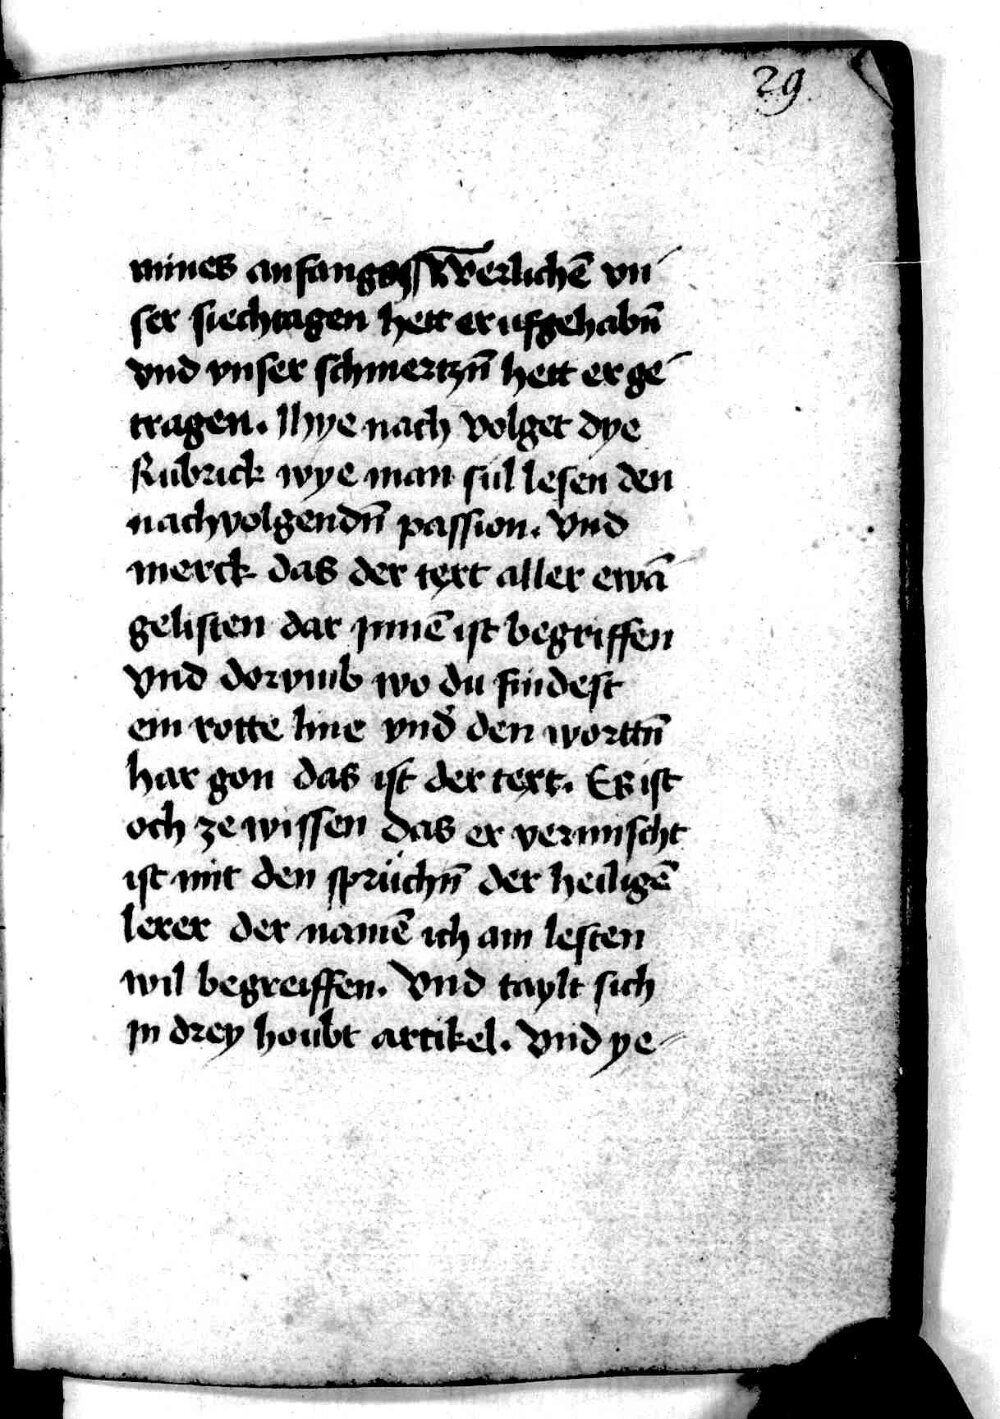 29
mines anfangs Werlichē vn
ser siechtagen hett er ufgehabn̄
vnd vnser schmertzn̄ hett er ge
tragen. Hye nach volget dye
Rubrick wye man sul lesen den
nachvolgendn̄ passion. Vnd
merck das der text aller ewā
gelisten dar jnnē ist begriffen
Vnd dorvmb wo du findest
ein rotte line vnd̛ den worttn̄
har gon das ist der text. Es ist
och ze wissen das er vermischt
ist mit den sprüchn̄ der heiligē
lerer der namē ich am lesten
wil begreiffen. Vnd taylt sich
jn drey houbt artikel. Vnd ye